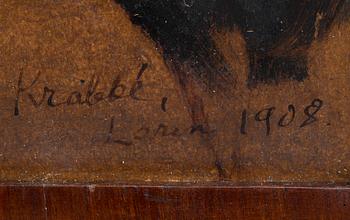 Krabbé,
Laren 1908.